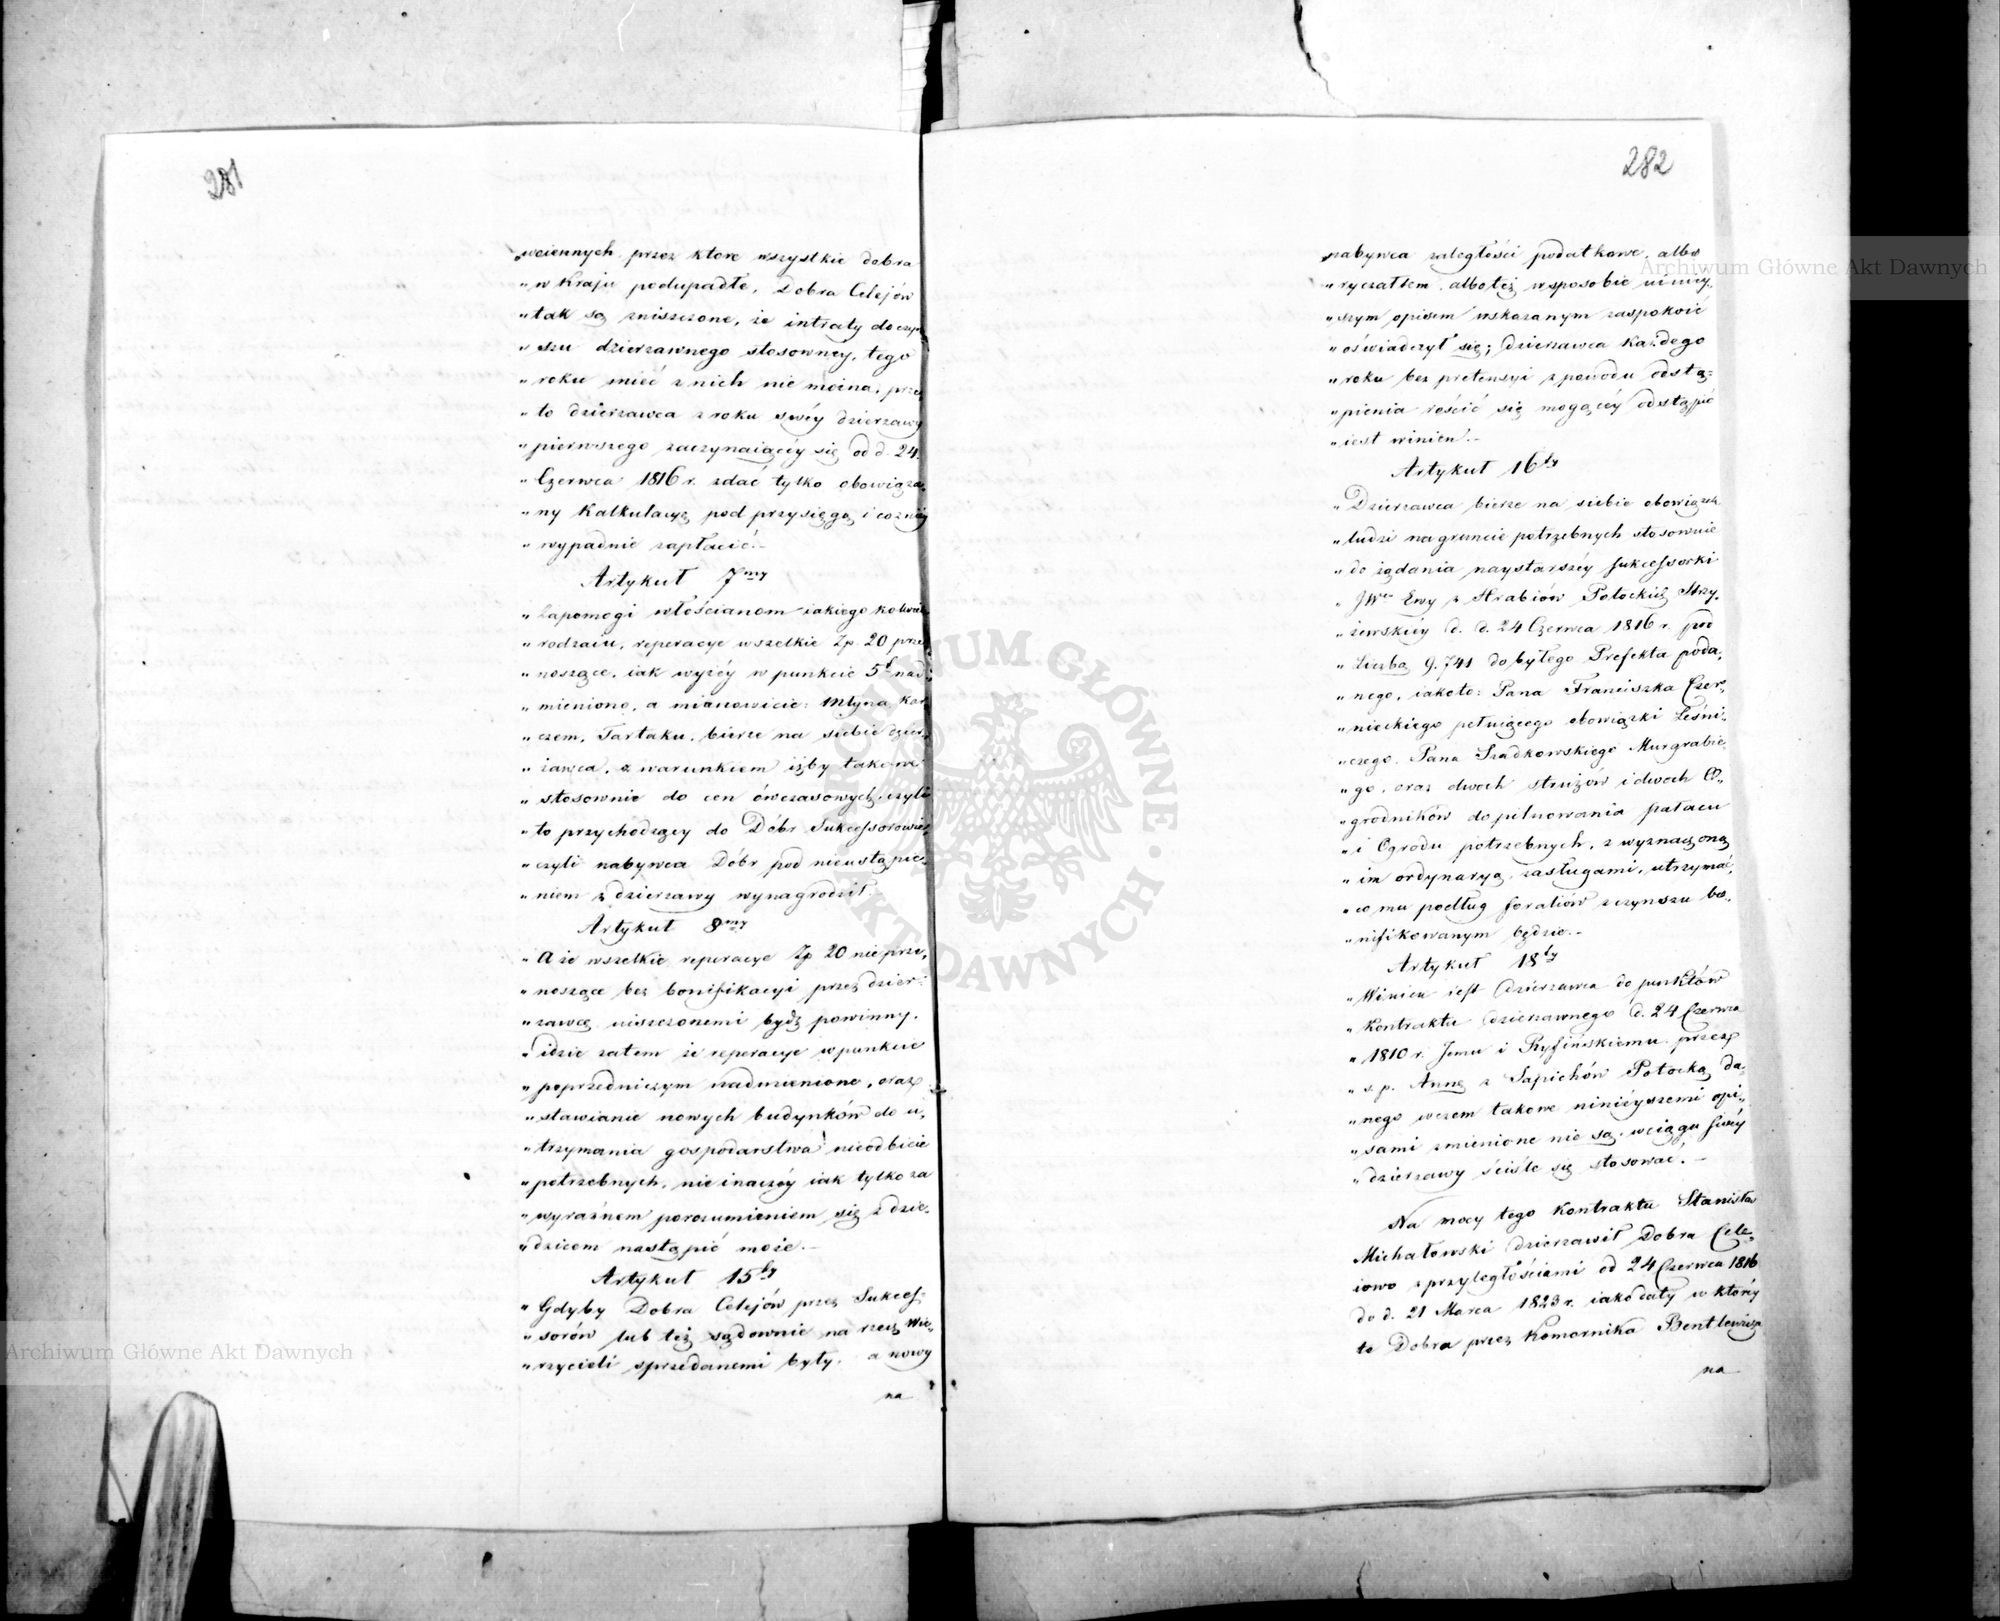 281
„woiennych przez ktore wszystkie dobra
„w Kraju podupadłe, Dobra Celejów
„tak są zniszczone, że intraty do czyn
„szu dzierzawnego stosowney, tego
„roku mieć z nich nie można, prze
„to dzierzawca z roku swéy dzierzawy
„pierwszego zaczynaiącéy się od d. 24.
„Czerwca 1816 r. zdać tylko obowiąza,
„ny Kalkulacyą pod przysięgą i co z niéy
„wypadnie zapłacić.–
Artykuł 7my
„Zapomogi włościanom iakiego kolwiek
„rodzaiu, reperacye wszelkie Zp. 20 prze
„noszące, iak wyżéy w punkcie 5. nad
„mieniono, a mianowicie: Młyna, Kar
„czem, Tartaku, bierze na siebie dzier,
„żawca, z warunkiem iżby takowe
„stosownie do cen ówczasowych, czyli
„to przychodzący do Dóbr Sukcessorowie,
„czyli nabywca Dóbr pod nieustąpie,
„niem z dzierzawy wynagrodził.
Artykuł 8my
„A że wszelkie reperacye Zp 20 nie prze,
„noszące bez bonifikacyi przez dzier
„zawcę uiszczonemi bydź powinny,
„idzie zatem że reperacye w punkcie
„poprzedniczym nadmienione, oraz
„stawianie nowych budynków do u,
„trzymania gospodarstwa nieodbicie
„potrzebnych, nie inaczéy iak tylko za
„wyraźnem porozumieniem się z dzie,
„dzicem nastąpić może.–
Artykuł 15ty
„Gdyby Dobra Celejów przez Sukces
„sorów lub też sądownie na rzecz Wie,
„rzycieli sprzedanemi były, a nowy
na
282
„nabywca zaległości podatkowe, albo
„ryczałtem, albo też w sposobie niniey,
„szym opisem wskazanym zaspokoić
„oświadczył się; dzierzawca każdego
„roku bez pretensyi z powodu odstą=
„pienia rościć się mogącéy odstąpić
„iest winien.–
Artykuł 16ty
„Dzierzawca bierze na siebie obowiązek
„ludzi na gruncie potrzebnych stosownie
„do żądania naystarszéy Sukcessorki
„JWéy Ewy z Hrabiów Potockich Strzy,
„żewskiéy d. d. 24 Czerwca 1816 r. pod
„Liczbą 9.741 do byłego Prefekta poda,
„nego, iakoto: Pana Franciszka Czer,
„nieckiego pełniącego obowiązki Leśni,
„czego, Pana Szadkowskiego Murgrabie,
„go, oraz dwoch stróżów i dwoch O,
„grodników do pilnowania pałacu
„i Ogrodu potrzebnych, z wyznaczoną
„im ordynaryą, zasługami, utrzymać,
„co mu podług foraliów z czynszu bo,
„nifikowanym będzie.–
Artykuł 18ty
„Winien iest dzierzawca do punktów
„Kontraktu dzierzawnego d. 24 Czerwca
„1810 r. Jemu i Ryfińskiemu przez
„s. p. Annę z Sapiehów Potocką da,
„nego wczem takowe ninieyszemi opi,
„sami zmienione nie są, w ciągu swéy
„dzierzawy ściśle się stosować.–
Na mocy tego Kontraktu Stanisław
Michałowski dzierzawił Dobra Cele,
iowo z przyległościami od 24 Czerwca 1816
do d. 21 Marca 1823 r. iako daty w któréy
te Dobra przez Komornika Bentlewicza
na
Archiwum Główne Akt Dawnych
Archiwum Główne Akt Dawnych
ARCHIWUM GŁÓWNE AKT DAWNYCH